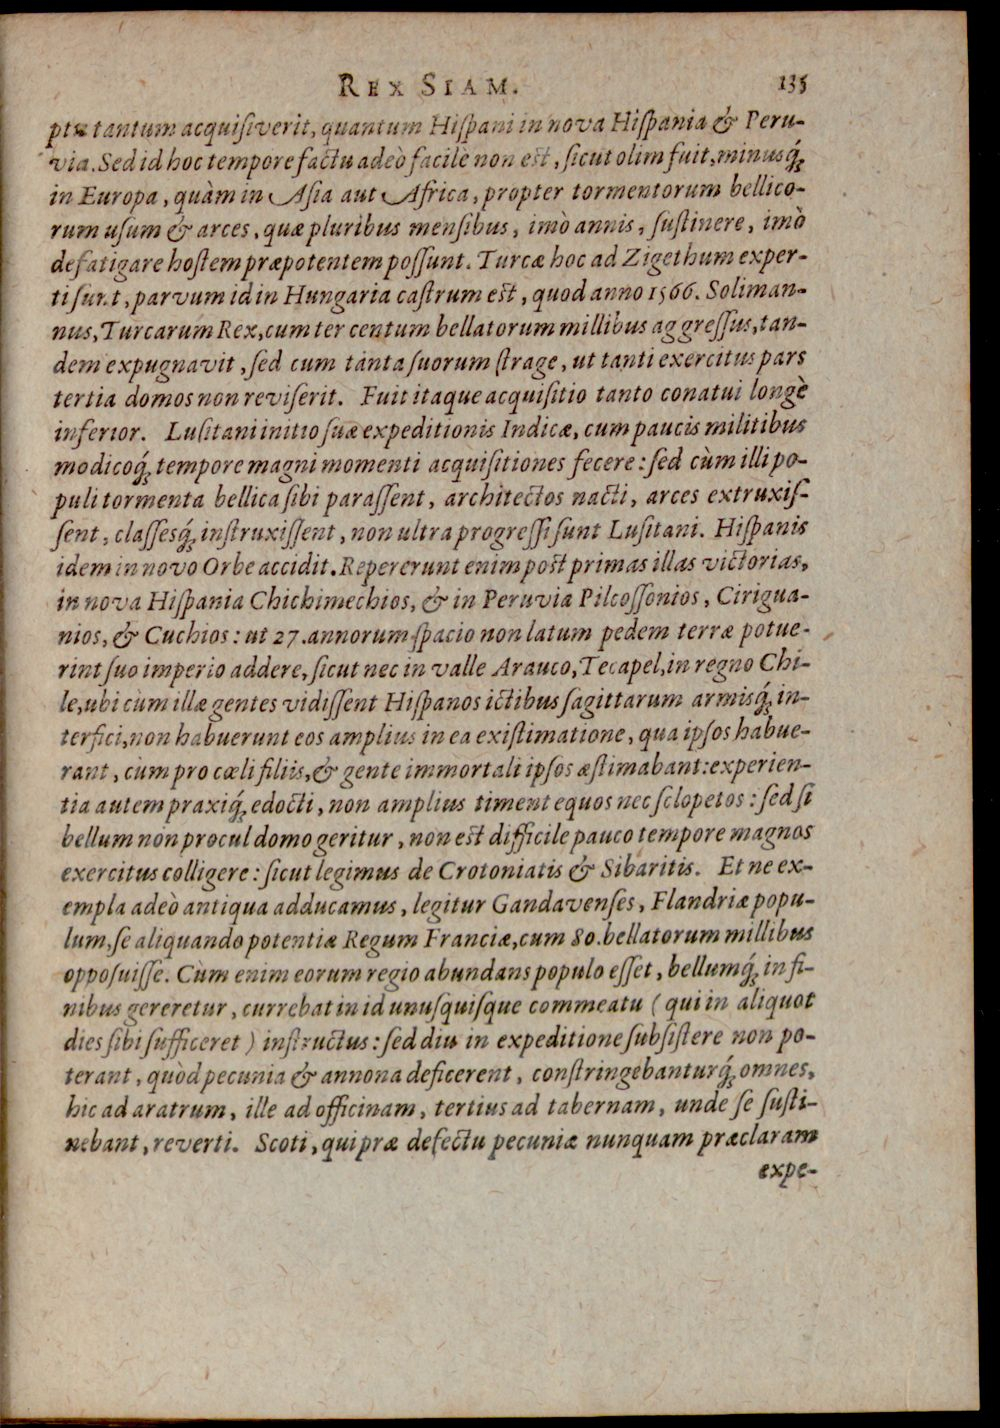 REX SIAM. 135
ptæ tantum acquiſiverit, quantum Hiſpani in nova Hiſpania & Peru-
via. Sed id hoc tempore factu adeò facilè non est, ſicut olim fuit, minusq́ꝫ
in Europa, quàm in Aſia aut Africa, propter tormentorum bellico-
rum uſum & arces, quæ pluribus menſibus, imò annis, ſuſtinere, imò
defatigare hoſtem præpotentem poſſunt. Turcæ hoc ad Zigethum exper-
ti ſunt, parvum id in Hungaria caſtrum est, quod anno 1566. Soliman-
nus, Turcarum Rex, cum ter centum bellatorum millibus aggreſſus, tan-
dem expugnavit, ſed cum tanta ſuorum ſtrage, ut tanti exercitus pars
tertia domos non reviſerit. Fuit itaque acquiſitio tanto conatui longè
inferior. Luſitani initio ſuæ expeditionis Indicæ, cum paucis militibus
modicoq́ꝫ tempore magni momenti acquiſitiones fecere: ſed cùm illi po-
puli tormenta bellica ſibi paraſſent, architectos nacti, arces extruxiſ-
ſent, claſſesq́ꝫ inſtruxiſſent, non ultra progreſſi ſunt Luſitani. Hiſpanis
idem in novo Orbe accidit. Repererunt enim post primas illas victorias,
in nova Hiſpania Chichimechios, & in Peruvia Pilcoſſonios, Cirigua-
nios, & Cuchios: ut 27. annorum ſpacio non latum pedem terræ potue-
rint ſuo imperio addere, ſicut nec in valle Arauco, Tecapel, in regno Chi-
le, ubi cùm illæ gentes vidiſſent Hiſpanos ictibus ſagittarum armisq́ꝫ in-
terfici, non habuerunt eos amplius in ea exiſtimatione, qua ipſos habue-
rant, cùm pro cœli filiis, & gente immortali ipſos æſtimabant: experien-
tia autem praxiq́ꝫ edocti, non amplius timent equos nec ſclopetos: ſed ſi
bellum non procul domo geritur, non est difficile pauco tempore magnos
exercitus colligere: ſicut legimus de Crotoniatis & Sibaritis. Et ne ex-
empla adeò antiqua adducamus, legitur Gandavenſes, Flandriæ popu-
lum, ſe aliquando potentiæ Regum Franciæ, cum 80. bellatorum millibus
oppoſuiſſe. Cùm enim eorum regio abundans populo eſſet, bellumq́ꝫ in fi-
nibus gereretur, currebat in id unuſquiſque commeatu (qui in aliquot
dies ſibi ſufficeret) inſtructus: ſed diu in expeditione ſubſiſtere non po-
terant, quòd pecunia & annona deficerent, conſtringebanturq́ꝫ omnes,
hic ad aratrum, ille ad officinam, tertius ad tabernam, unde ſe ſuſti-
nebant, reverti. Scoti, qui præ defectu pecuniæ nunquam præclaram
expe-